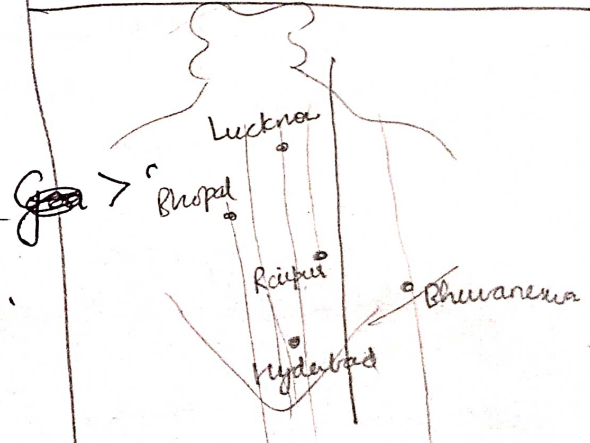 Lucknow
Goa > "
Bhopal
Raipur
Bhuvaneswa
Hyderbad